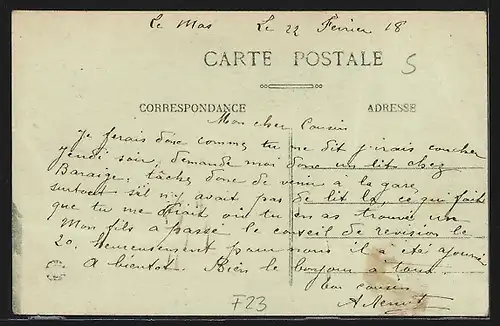 Le Mas Le 22 Février 18
CARTE POSTALE
5
CORRESPONDANCE ADRESSE
Mon cher Cousin
Je ferais donc comme tu me dit j'irais coucher
jeudi soir, demande moi donc un lit chez
Baraige, tâches donc de venir à la gare
surtout s'il n'y avait pas de lit là, ce qui fait
que tu me dirait où tu en as trouvé un
Mon fils à passé le conseil de revision le
20. Heureusement pour nous il à été ajourné
A bientot. Bien le bonjour à tous.
ton cousin
F23